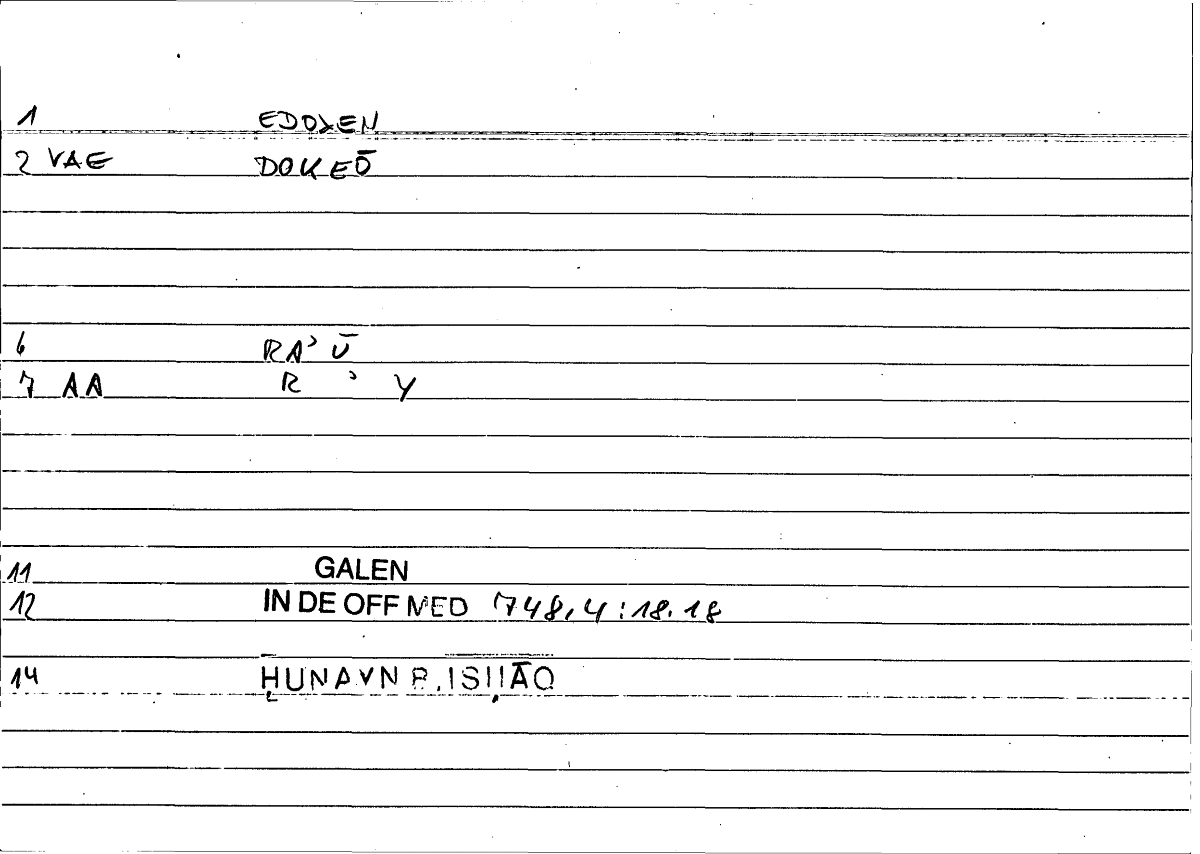 1 EDOXEN
2 VAE DOKEŌ
6 RAʾ Ū
7 AA R ʾ Y
11 GALEN
12 IN DE OFF MED 748,4:18.18
14 ḤUNAYN B. ISḤĀQ